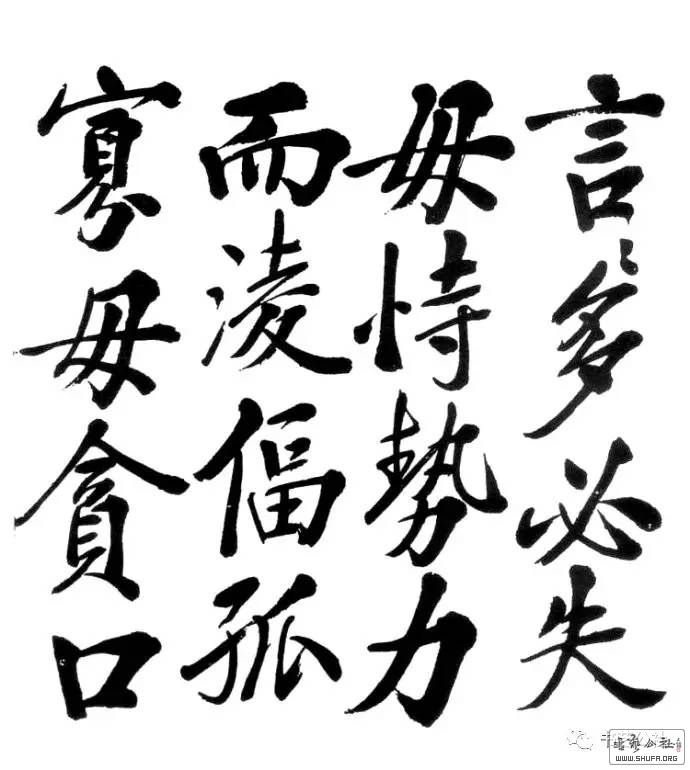 言〻多必失
毋恃勢力
而淩偪孤
寡毋貪口
WWW.SHUFA.ORG